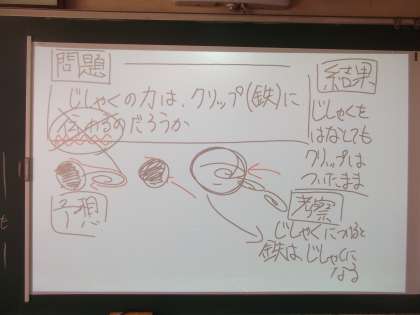 問題
じしゃくの力は、クリップ(鉄)に
伝わるのだろうか
予想
結果
じしゃくを
はなしても
クリップは
ついたまま
考察
じしゃくにつけると
鉄は、じしゃくに
なる